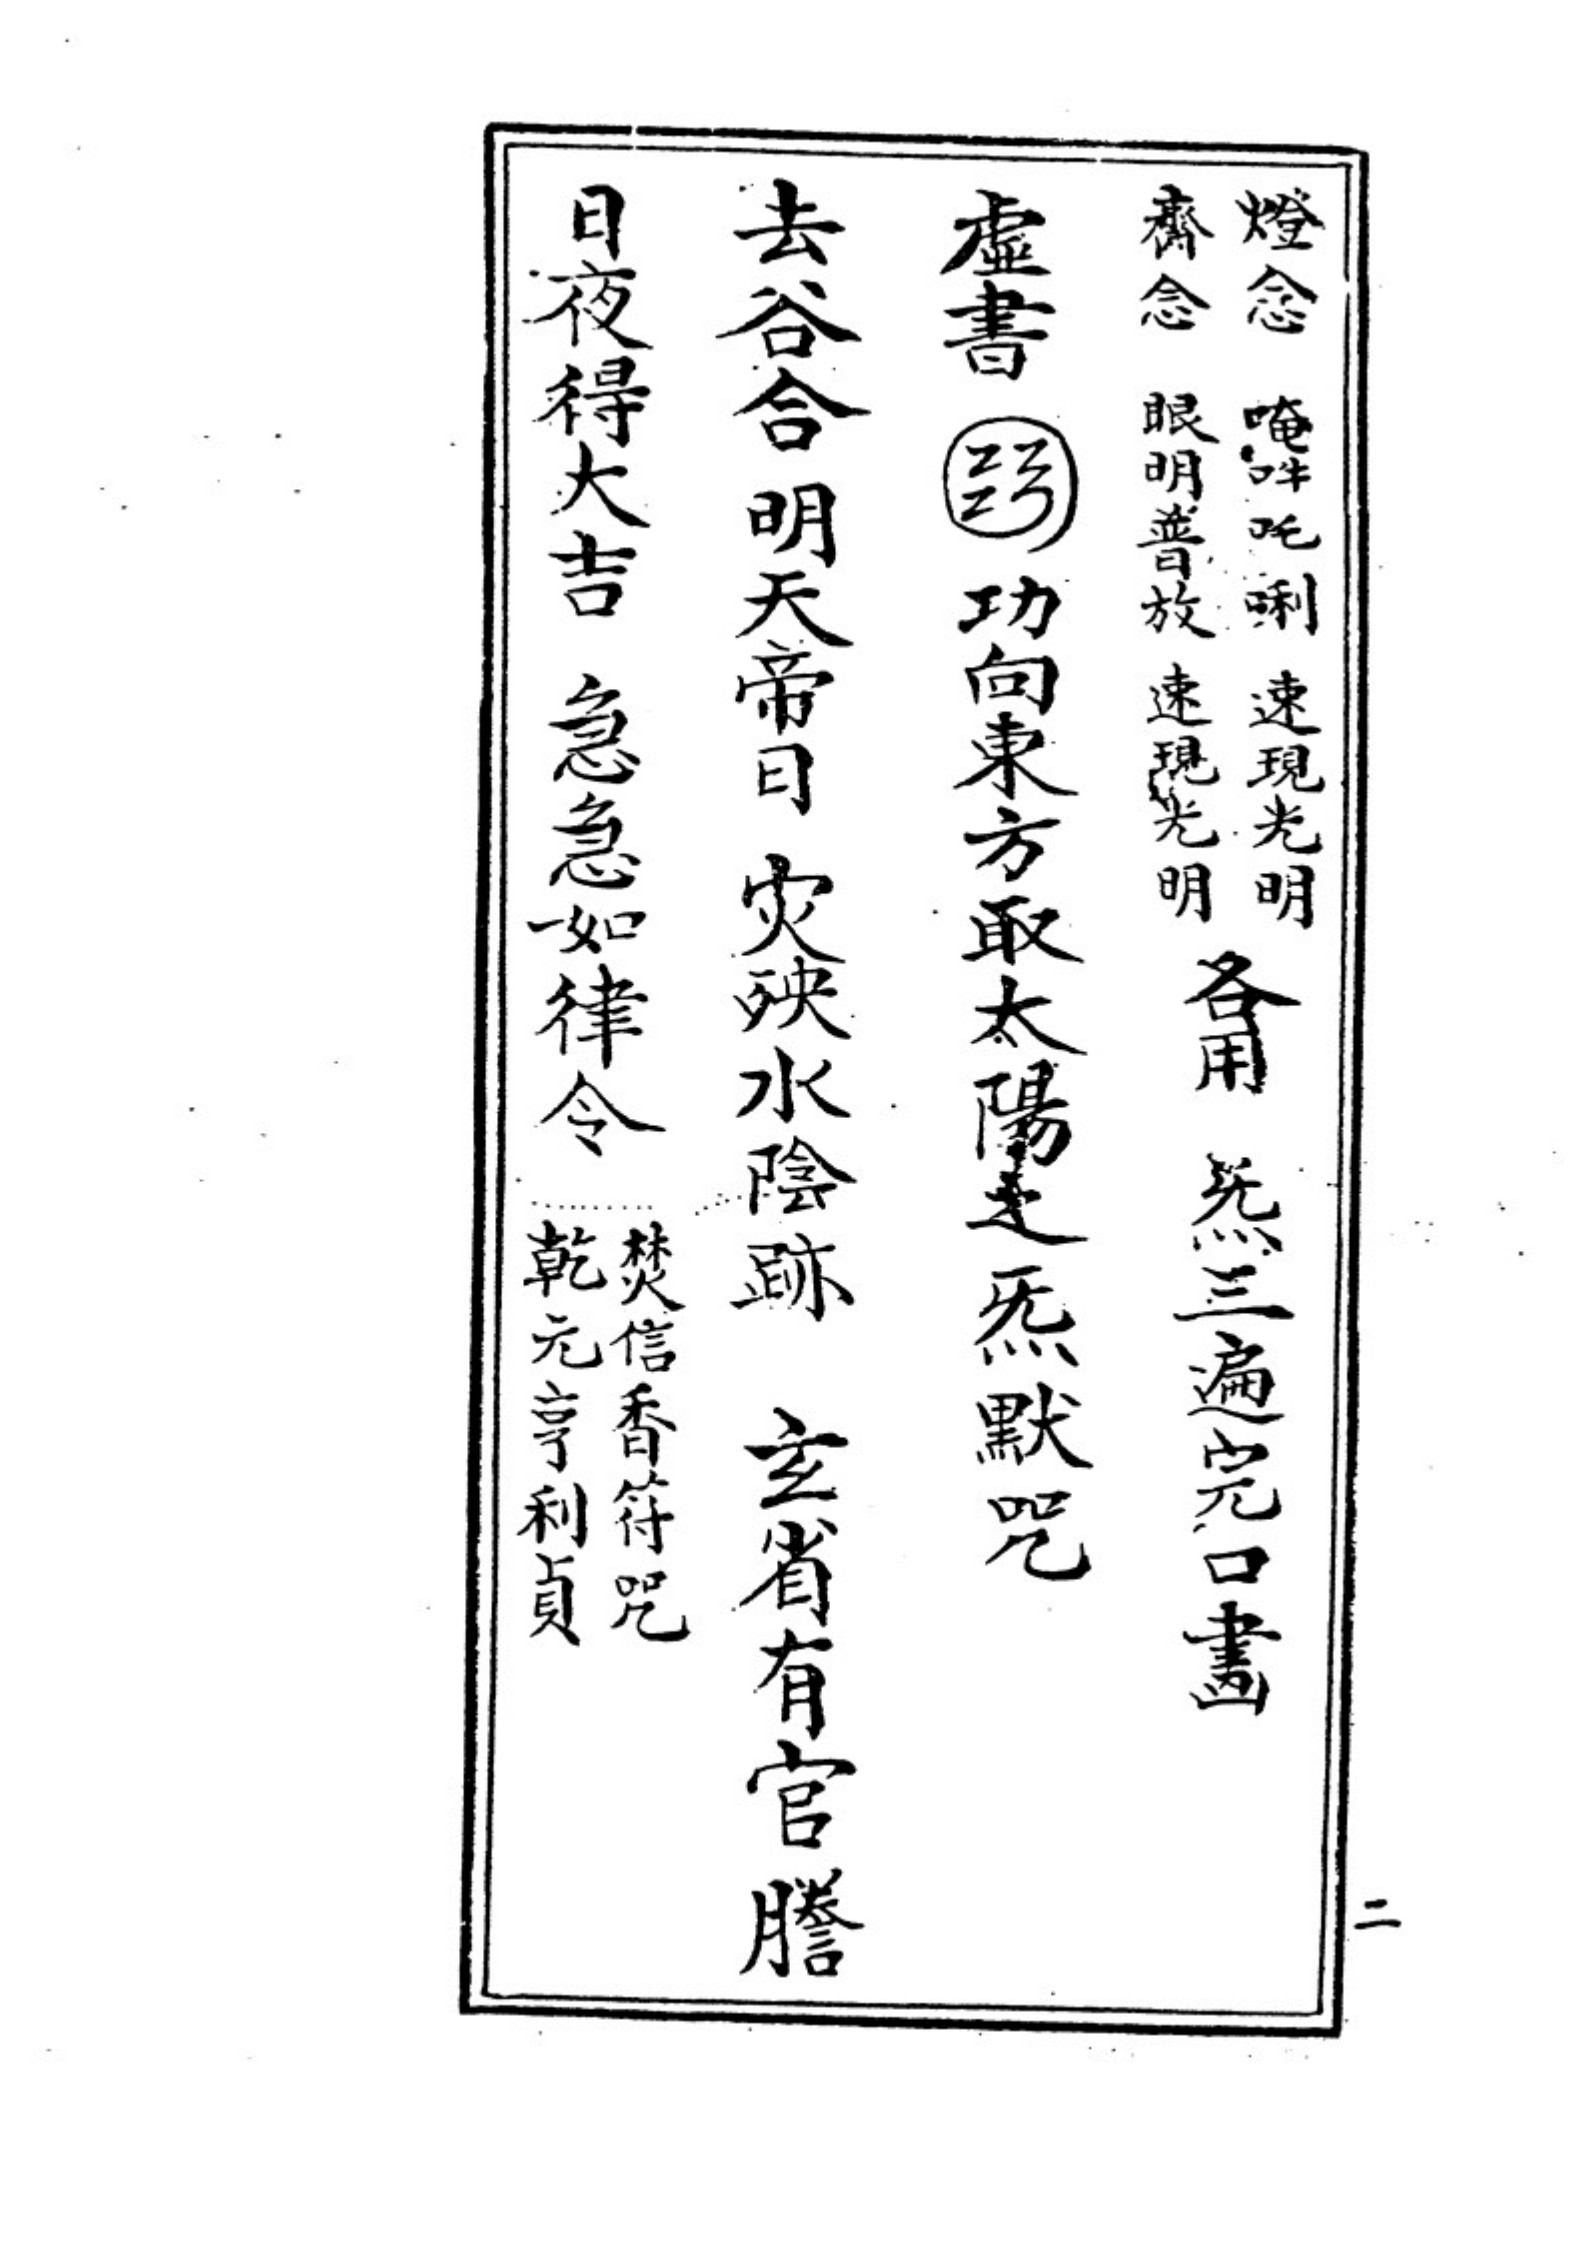 燈念 唵吽吒唎 速現光明
齋念 眼明普放 速現光明
各用 炁三遍完口書
虛書 功向東方取太陽之炁默咒
去谷合 明天帝日 灾殃水陰跡 玄省有官謄
日夜得大吉 急急如律令
焚信香符咒
乾元亨利貞
二